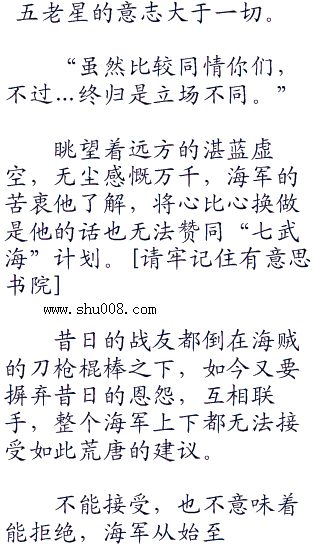 五老星的意志大于一切。
“虽然比较同情你们，
不过…终归是立场不同。”
眺望着远方的湛蓝虚
空，无尘感慨万千，海军的
苦衷他了解，将心比心换做
是他的话也无法赞同“七武
海”计划。[请牢记住有意思
书院]
www.shu008.com
昔日的战友都倒在海贼
的刀枪棍棒之下，如今又要
摒弃昔日的恩怨，互相联
手，整个海军上下都无法接
受如此荒唐的建议。
不能接受，也不意味着
能拒绝，海军从始至